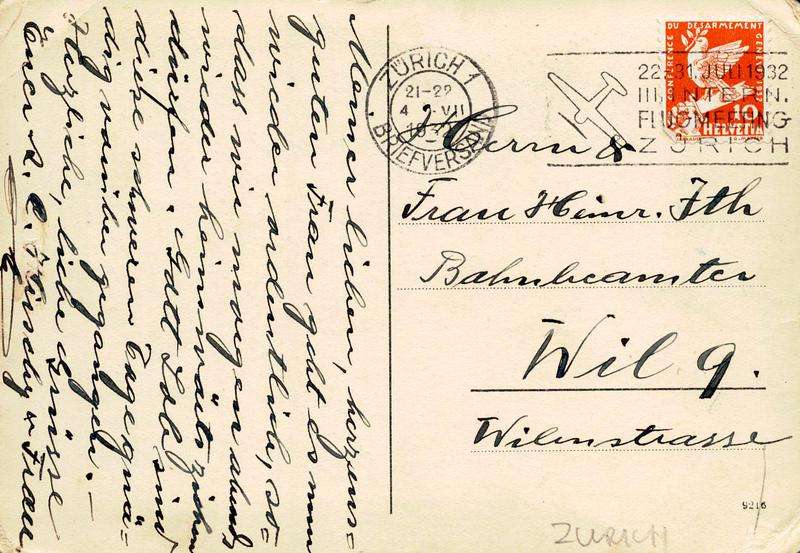 Meiner lieben, herzens=
guten Frau geht es nun
wieder ordentlich, so=
dass wir morgen abend
wieder heimwärts ziehen
dürfen. Gott Lob sind
diese schweren Tage gnä=
dig vorüber gegangen. –
Herzliche, liebe Grüsse
Euer & Frau
ZÜRICH 1
21-22
4. VII
BRIEFVERSAND
22.-31. JULI 1932
III. INTERN.
FLUGMEETING
ZÜRICH
CONFERENCE DU DESARMEMENT GENEVE 1932
10
HELVETIA
Herrn &
Frau Heinr. Ith
Bahnbeamter
Wil g.
Wilenstrasse
9216
ZURICH